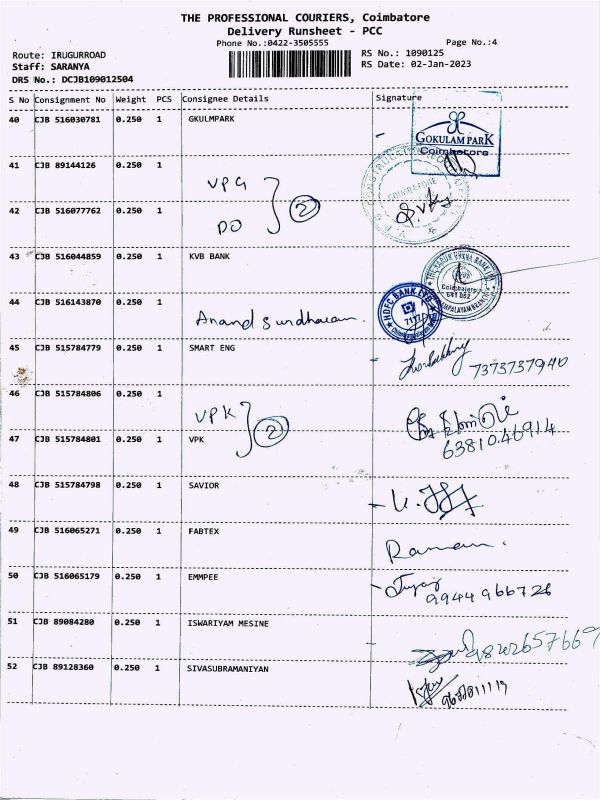 THE PROFESSIONAL COURIERS, Coimbatore
Delivery Runsheet - PCC
Phone No.:0422-3505555 Page No.:4
Route: IRUGURROAD RS No.: 1090125
Staff: SARANYA RS Date: 02-Jan-2023
DRS No.: DCJB109012504
S No Consignment No Weight PCS Consignee Details Signature
40 CJB 516030781 0.250 1 GKULMPARK
GOKULAM PARK
Coimbatore
41 CJB 89144126 0.250 1
VPG
42 CJB 516077762 0.250 1
DO 2
43 CJB 516044859 0.250 1 KVB BANK
Coimbatore
44 CJB 516143870 0.250 1
HDFC BANK LTD
Anand Sundharam
45 CJB 515784779 0.250 1 SMART ENG
7373737940
46 CJB 515784806 0.250 1
VPK 2
47 CJB 515784801 0.250 1 VPK
6381046914
48 CJB 515784798 0.250 1 SAVIOR
49 CJB 516065271 0.250 1 FABTEX
Raman.
50 CJB 516065179 0.250 1 EMMPEE
9944966726
51 CJB 89084280 0.250 1 ISWARIYAM MESINE
52 CJB 89128360 0.250 1 SIVASUBRAMANIYAN